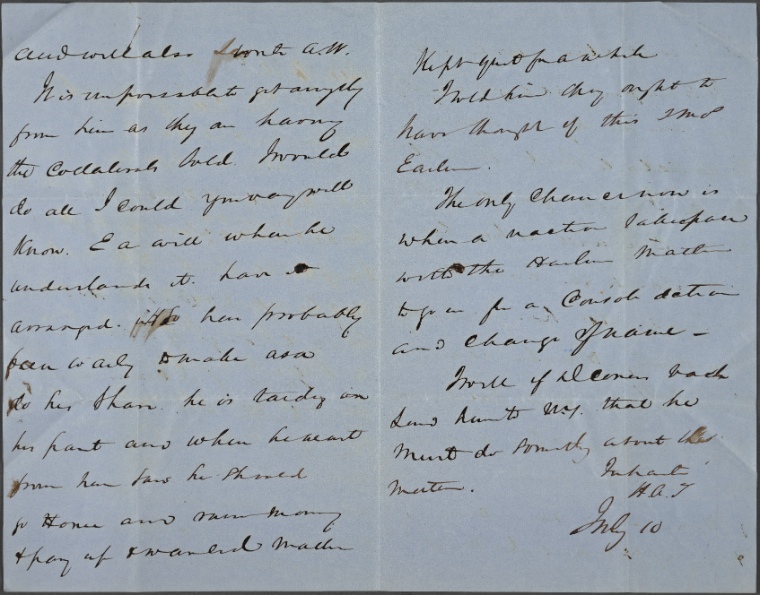 and will also write A.W.
It is impossible to get anything
from him as they are having
the Collaterals Sold. I would
do all I could you may well
Know. E a will when he
understands it have it
arranged. has probably
been to make as a
do his Share he is tardy on
his part and when he went
from here Saw he should
go Home and raise money
& pay up & wanted matters
Kept quiet for a while
I told him they ought to
have thought of this
Earlier.
The only Chance now is
when a reaction takes place
with the Harlem Matter
to go in for a Consolidation
and Change of name –
I will if D comes back
Send him to NY. that he
Must do something about this
Matter.
In haste
H.A.T
July 10